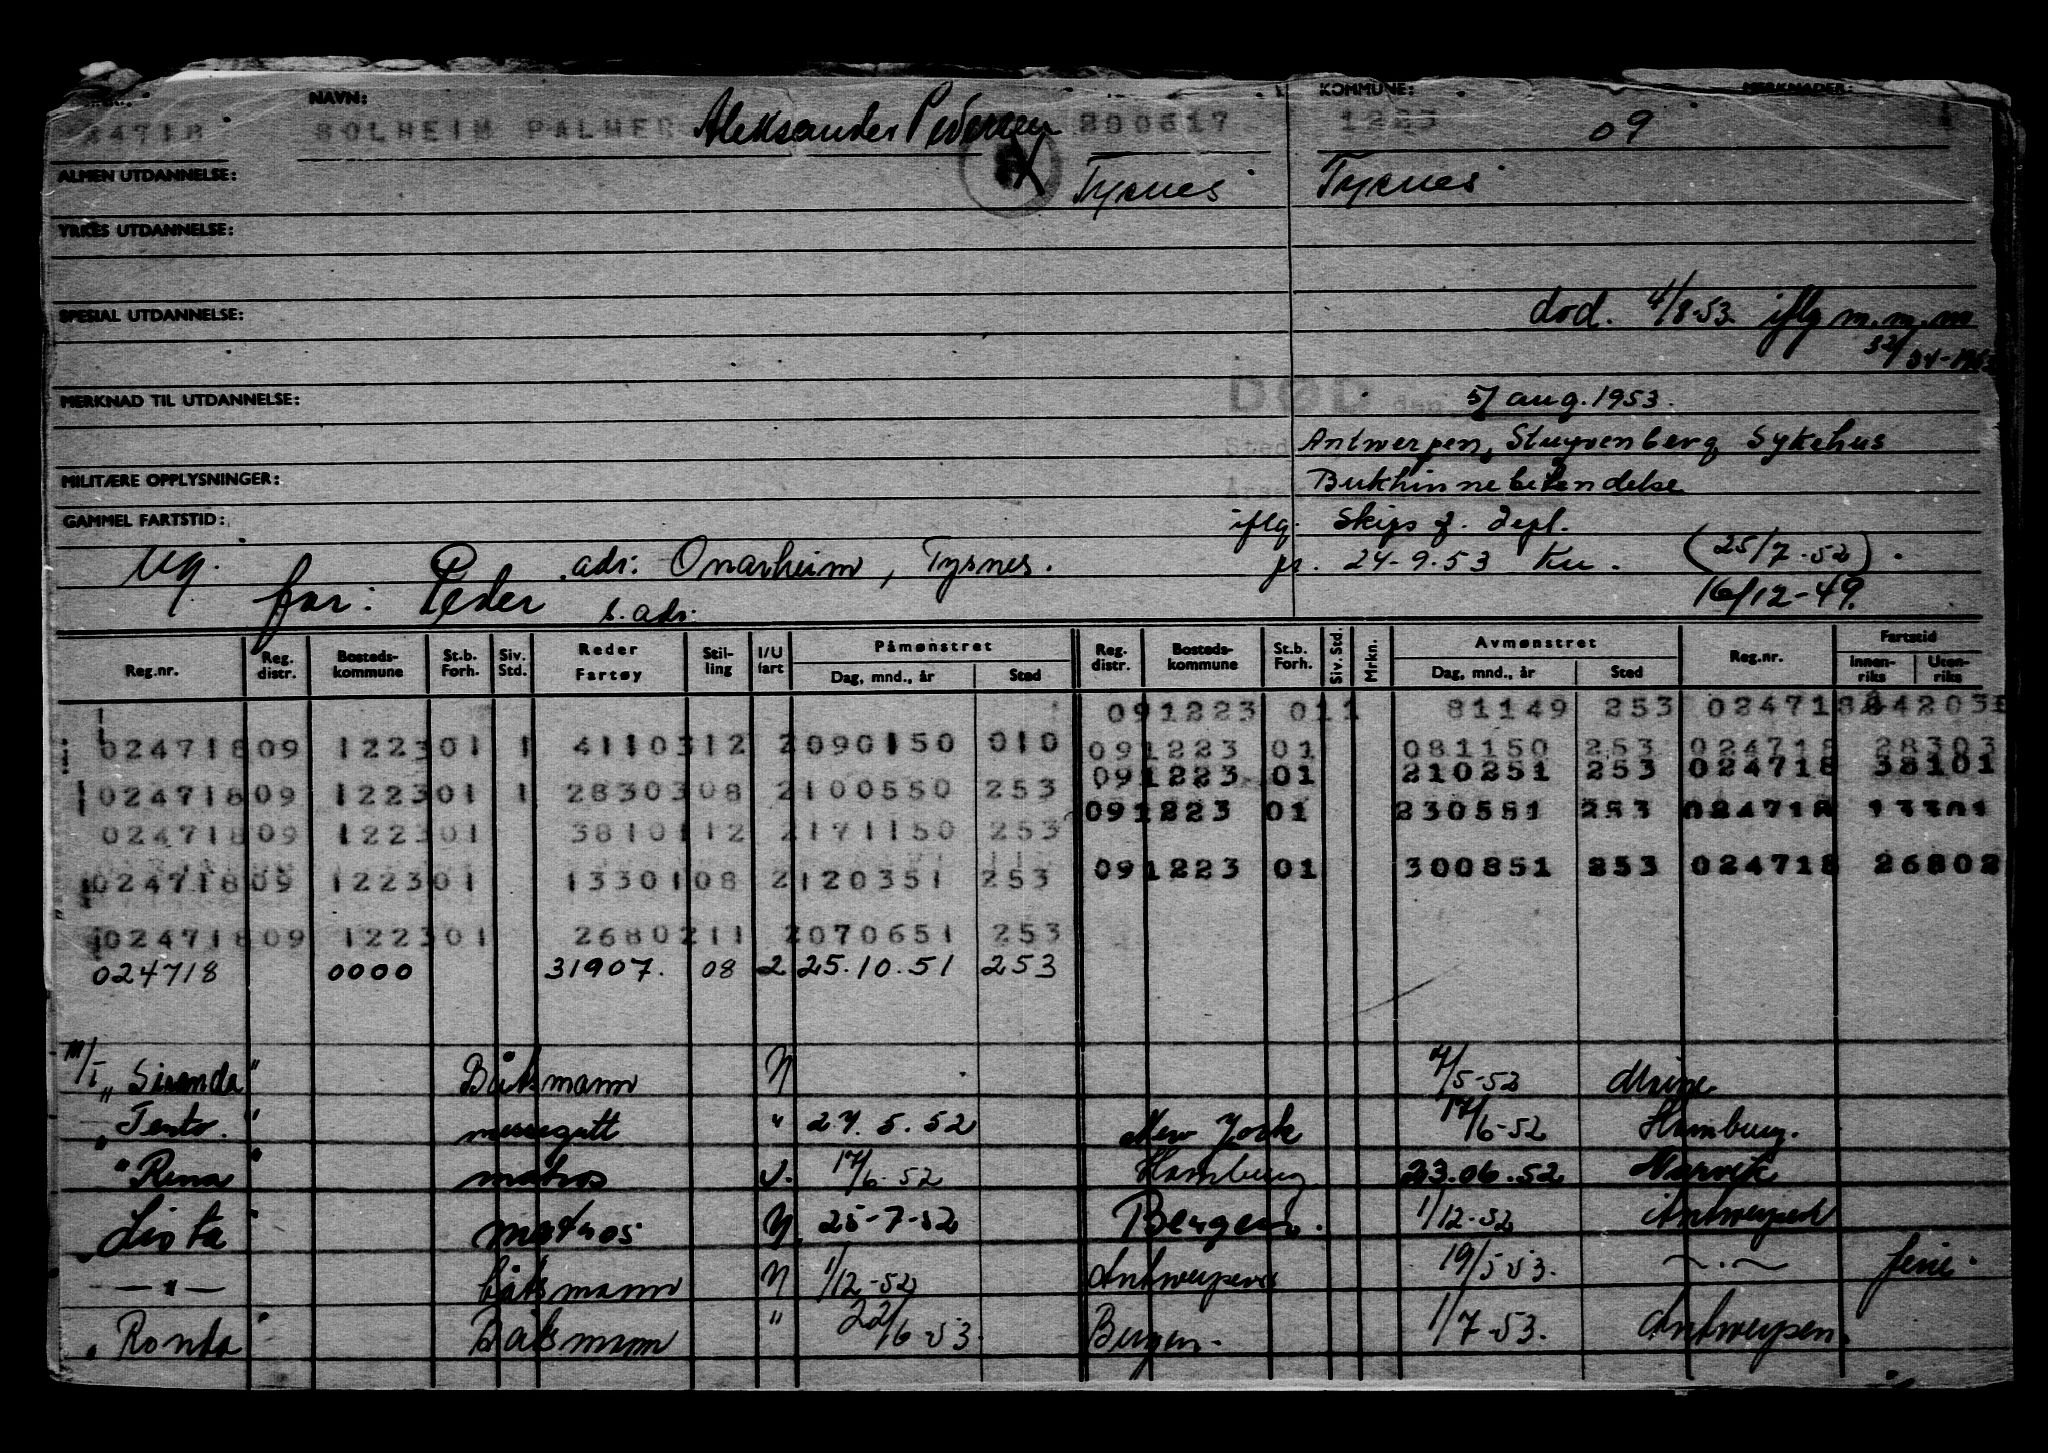 NAVN: KOMMUNE: MERKNADER:
24718 SOLHEIM PALMER Aleksander Pedersen 200617 1223 09
ALMEN UTDANNELSE: Tysnes Tysnes
YRKES UTDANNELSE:
SPESIAL UTDANNELSE: død. 4/8-53. iflg m.m.m
MERKNAD TIL UTDANNELSE: DØD den 5/ aug. 1953.
Sted Antwerpen, Stuyvenberg Sykehus
MILITÆRE OPPLYSNINGER: Bukhinnebetendelse
GAMMEL FARTSTID: iflg. Skips f. depl.
ug. adr: Onarheim, Tysnes. pr. 24-9-53 Ku. (25/7-52).
far: Peder s. adr: 16/12-49.
Reg.nr. Reg. distr. Bosteds-kommune St.b. Forh. Siv. Std. Reder Fartøy Stil-ling I/U fart Påmønstret Dag, mnd., år Sted Reg. distr. Bosteds-kommune St.b. Forh. Siv. Std. Mrkn. Avmønstret Dag, mnd., år Sted Reg.nr. Fartstid Innen-riks Uten-riks
091223 011 81149 253 024718
02471809 122301 1 4110312 2090150 010 091223 01 081150 253 024718 28303
091223 01 210251 253 024718 38101
02471809 122301 1 2830308 2100550 253 091223 01 230551 253 024718 13301
02471809 122301 3810112 2171150 253
02471809 122301 1330108 2120351 253 091223 01 300851 253 024718 26802
02471809 122301 2680211 2070651 253
024718 0000 31907. 08 2 25.10.51 253
M/T "Siranda" Båtsmann N 4/5-52
"Tento." messegutt " 27.5.52 New York 17/6-52 Hamburg.
"Rena" matros 17/6-52 Hamburg 23.06.52 Narvik
"Lista" matros N 25-7-52 Bergen. 1/12-52 Antwerpen
— " — båtsmann N 1/12-52 Antwerpen 19/5-53. ferie.
"Ronda" Båtsmann " 22/6-53. Bergen. 1/7-53. Antwerpen.